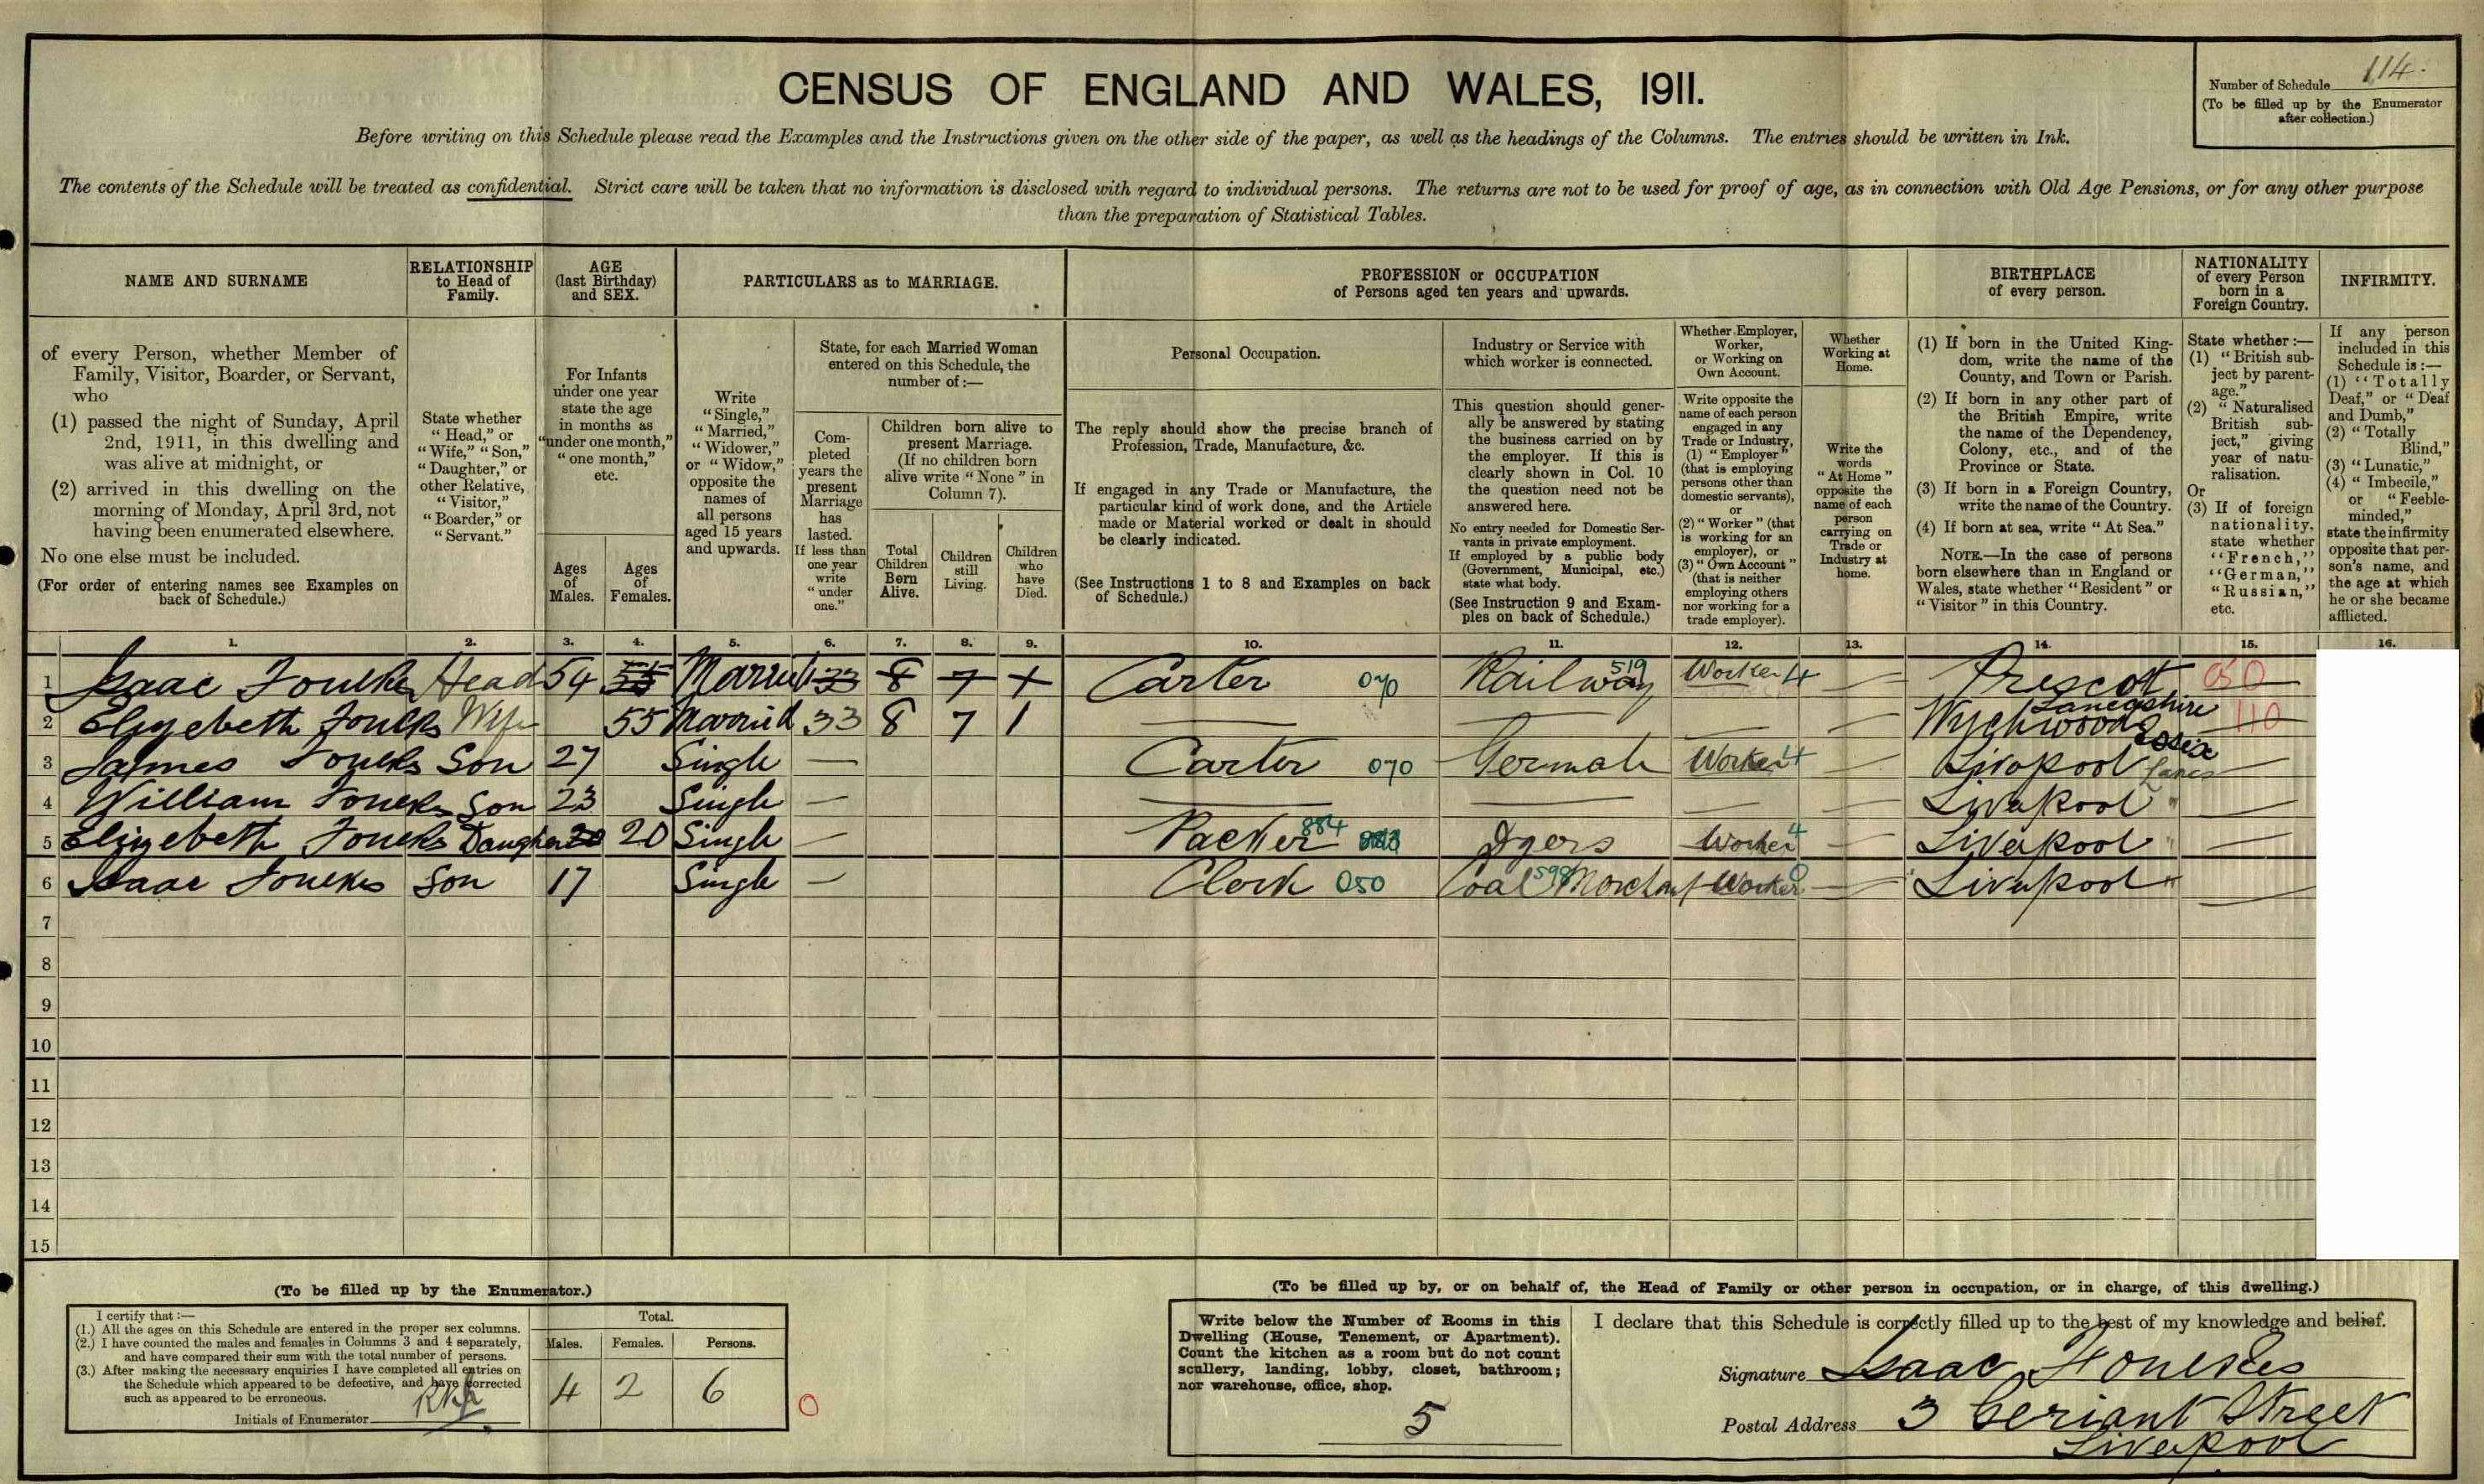 CENSUS OF ENGLAND AND WALES, 1911.
Number of Schedule 114.
(To be filled up by the Enumerator
after collection.)
Before writing on this Schedule please read the Examples and the Instructions given on the other side of the paper, as well as the headings of the Columns. The entries should be written in Ink.
The contents of the Schedule will be treated as confidential. Strict care will be taken that no information is disclosed with regard to individual persons. The returns are not to be used for proof of age, as in connection with Old Age Pensions, or for any other purpose
than the preparation of Statistical Tables.
NAME AND SURNAME
of every Person, whether Member of
Family, Visitor, Boarder, or Servant,
who
(1) passed the night of Sunday, April
2nd, 1911, in this dwelling and
was alive at midnight, or
(2) arrived in this dwelling on the
morning of Monday, April 3rd, not
having been enumerated elsewhere.
No one else must be included.
(For order of entering names see Examples on
back of Schedule.)
RELATIONSHIP
to Head of
Family.
State whether
"Head," or
"Wife," "Son,"
"Daughter," or
other Relative,
"Visitor,"
"Boarder," or
"Servant."
AGE
(last Birthday)
and SEX.
For Infants
under one year
state the age
in months as
"under one month,"
"one month,"
etc.
Ages
of
Males.
Ages
of
Females.
PARTICULARS as to MARRIAGE.
Write
"Single,"
"Married,"
"Widower,"
or "Widow,"
opposite the
names of
all persons
aged 15 years
and upwards.
State, for each Married Woman
entered on this Schedule, the
number of:—
Com-
pleted
years the
present
Marriage
has
lasted.
If less than
one year
write
"under
one."
Children born alive to
present Marriage.
(If no children born
alive write "None" in
Column 7).
Total
Children
Born
Alive.
Children
still
Living.
Children
who
have
Died.
PROFESSION or OCCUPATION
of Persons aged ten years and upwards.
Personal Occupation.
The reply should show the precise branch of
Profession, Trade, Manufacture, &c.
If engaged in any Trade or Manufacture, the
particular kind of work done, and the Article
made or Material worked or dealt in should
be clearly indicated.
(See Instructions 1 to 8 and Examples on back
of Schedule.)
Industry or Service with
which worker is connected.
This question should gener-
ally be answered by stating
the business carried on by
the employer. If this is
clearly shown in Col. 10
the question need not be
answered here.
No entry needed for Domestic Ser-
vants in private employment.
If employed by a public body
(Government, Municipal, etc.)
state what body.
(See Instruction 9 and Exam-
ples on back of Schedule.)
Whether Employer,
Worker,
or Working on
Own Account.
Write opposite the
name of each person
engaged in any
Trade or Industry,
(1) "Employer"
(that is employing
persons other than
domestic servants),
or
(2) "Worker" (that
is working for an
employer), or
(3) "Own Account"
(that is neither
employing others
nor working for a
trade employer).
Whether
Working at
Home.
Write the
words
"At Home"
opposite the
name of each
person
carrying on
Trade or
Industry at
home.
BIRTHPLACE
of every person.
(1) If born in the United King-
dom, write the name of the
County, and Town or Parish.
(2) If born in any other part of
the British Empire, write
the name of the Dependency,
Colony, etc., and of the
Province or State.
(3) If born in a Foreign Country,
write the name of the Country.
(4) If born at sea, write "At Sea."
NOTE.—In the case of persons
born elsewhere than in England or
Wales, state whether "Resident" or
"Visitor" in this Country.
NATIONALITY
of every Person
born in a
Foreign Country.
State whether:—
(1) "British sub-
ject by parent-
age."
(2) "Naturalised
British sub-
ject," giving
year of natu-
ralisation.
Or
(3) If of foreign
nationality,
state whether
"French,"
"German,"
"Russian,"
etc.
INFIRMITY.
If any person
included in this
Schedule is:—
(1) "Totally
Deaf," or "Deaf
and Dumb,"
(2) "Totally
Blind,"
(3) "Lunatic,"
(4) "Imbecile,"
or "Feeble-
minded,"
state the infirmity
opposite that per-
son's name, and
the age at which
he or she became
afflicted.
1. 2. 3. 4. 5. 6. 7. 8. 9. 10. 11. 12. 13. 14. 15. 16.
1 Isaac Foulkes Head 54 55 Married 33 8 7 Carter 070 Railway 519 Worker 4 Prescot Lancashire 050
2 Elizebeth Foulkes Wife 55 Married 33 8 7 1 Wychwood 110
3 James Foulkes Son 27 Single — Carter 070 Worker 4 Liverpool Lancs
4 William Foulkes Son 23 Single — Liverpool "
5 Elizebeth Foulkes Daughter 20 Single — Packer 884 Dyers Worker 4 Liverpool "
6 Isaac Foulkes Son 17 Single — Clerk 050 Coal 598 Merchant Worker 0 Liverpool "
7
8
9
10
11
12
13
14
15
(To be filled up by the Enumerator.)
I certify that:—
(1.) All the ages on this Schedule are entered in the proper sex columns.
(2.) I have counted the males and females in Columns 3 and 4 separately,
and have compared their sum with the total number of persons.
(3.) After making the necessary enquiries I have completed all entries on
the Schedule which appeared to be defective, and have corrected
such as appeared to be erroneous.
Initials of Enumerator
Total.
Males. Females. Persons.
4 2 6
0
(To be filled up by, or on behalf of, the Head of Family or other person in occupation, or in charge, of this dwelling.)
Write below the Number of Rooms in this
Dwelling (House, Tenement, or Apartment).
Count the kitchen as a room but do not count
scullery, landing, lobby, closet, bathroom;
nor warehouse, office, shop.
5
I declare that this Schedule is correctly filled up to the best of my knowledge and belief.
Signature Isaac Foulkes
Postal Address 3 Geriant Street
Liverpool